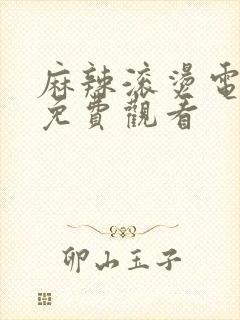 麻辣滚燙電
免費觀看
卵山玉子